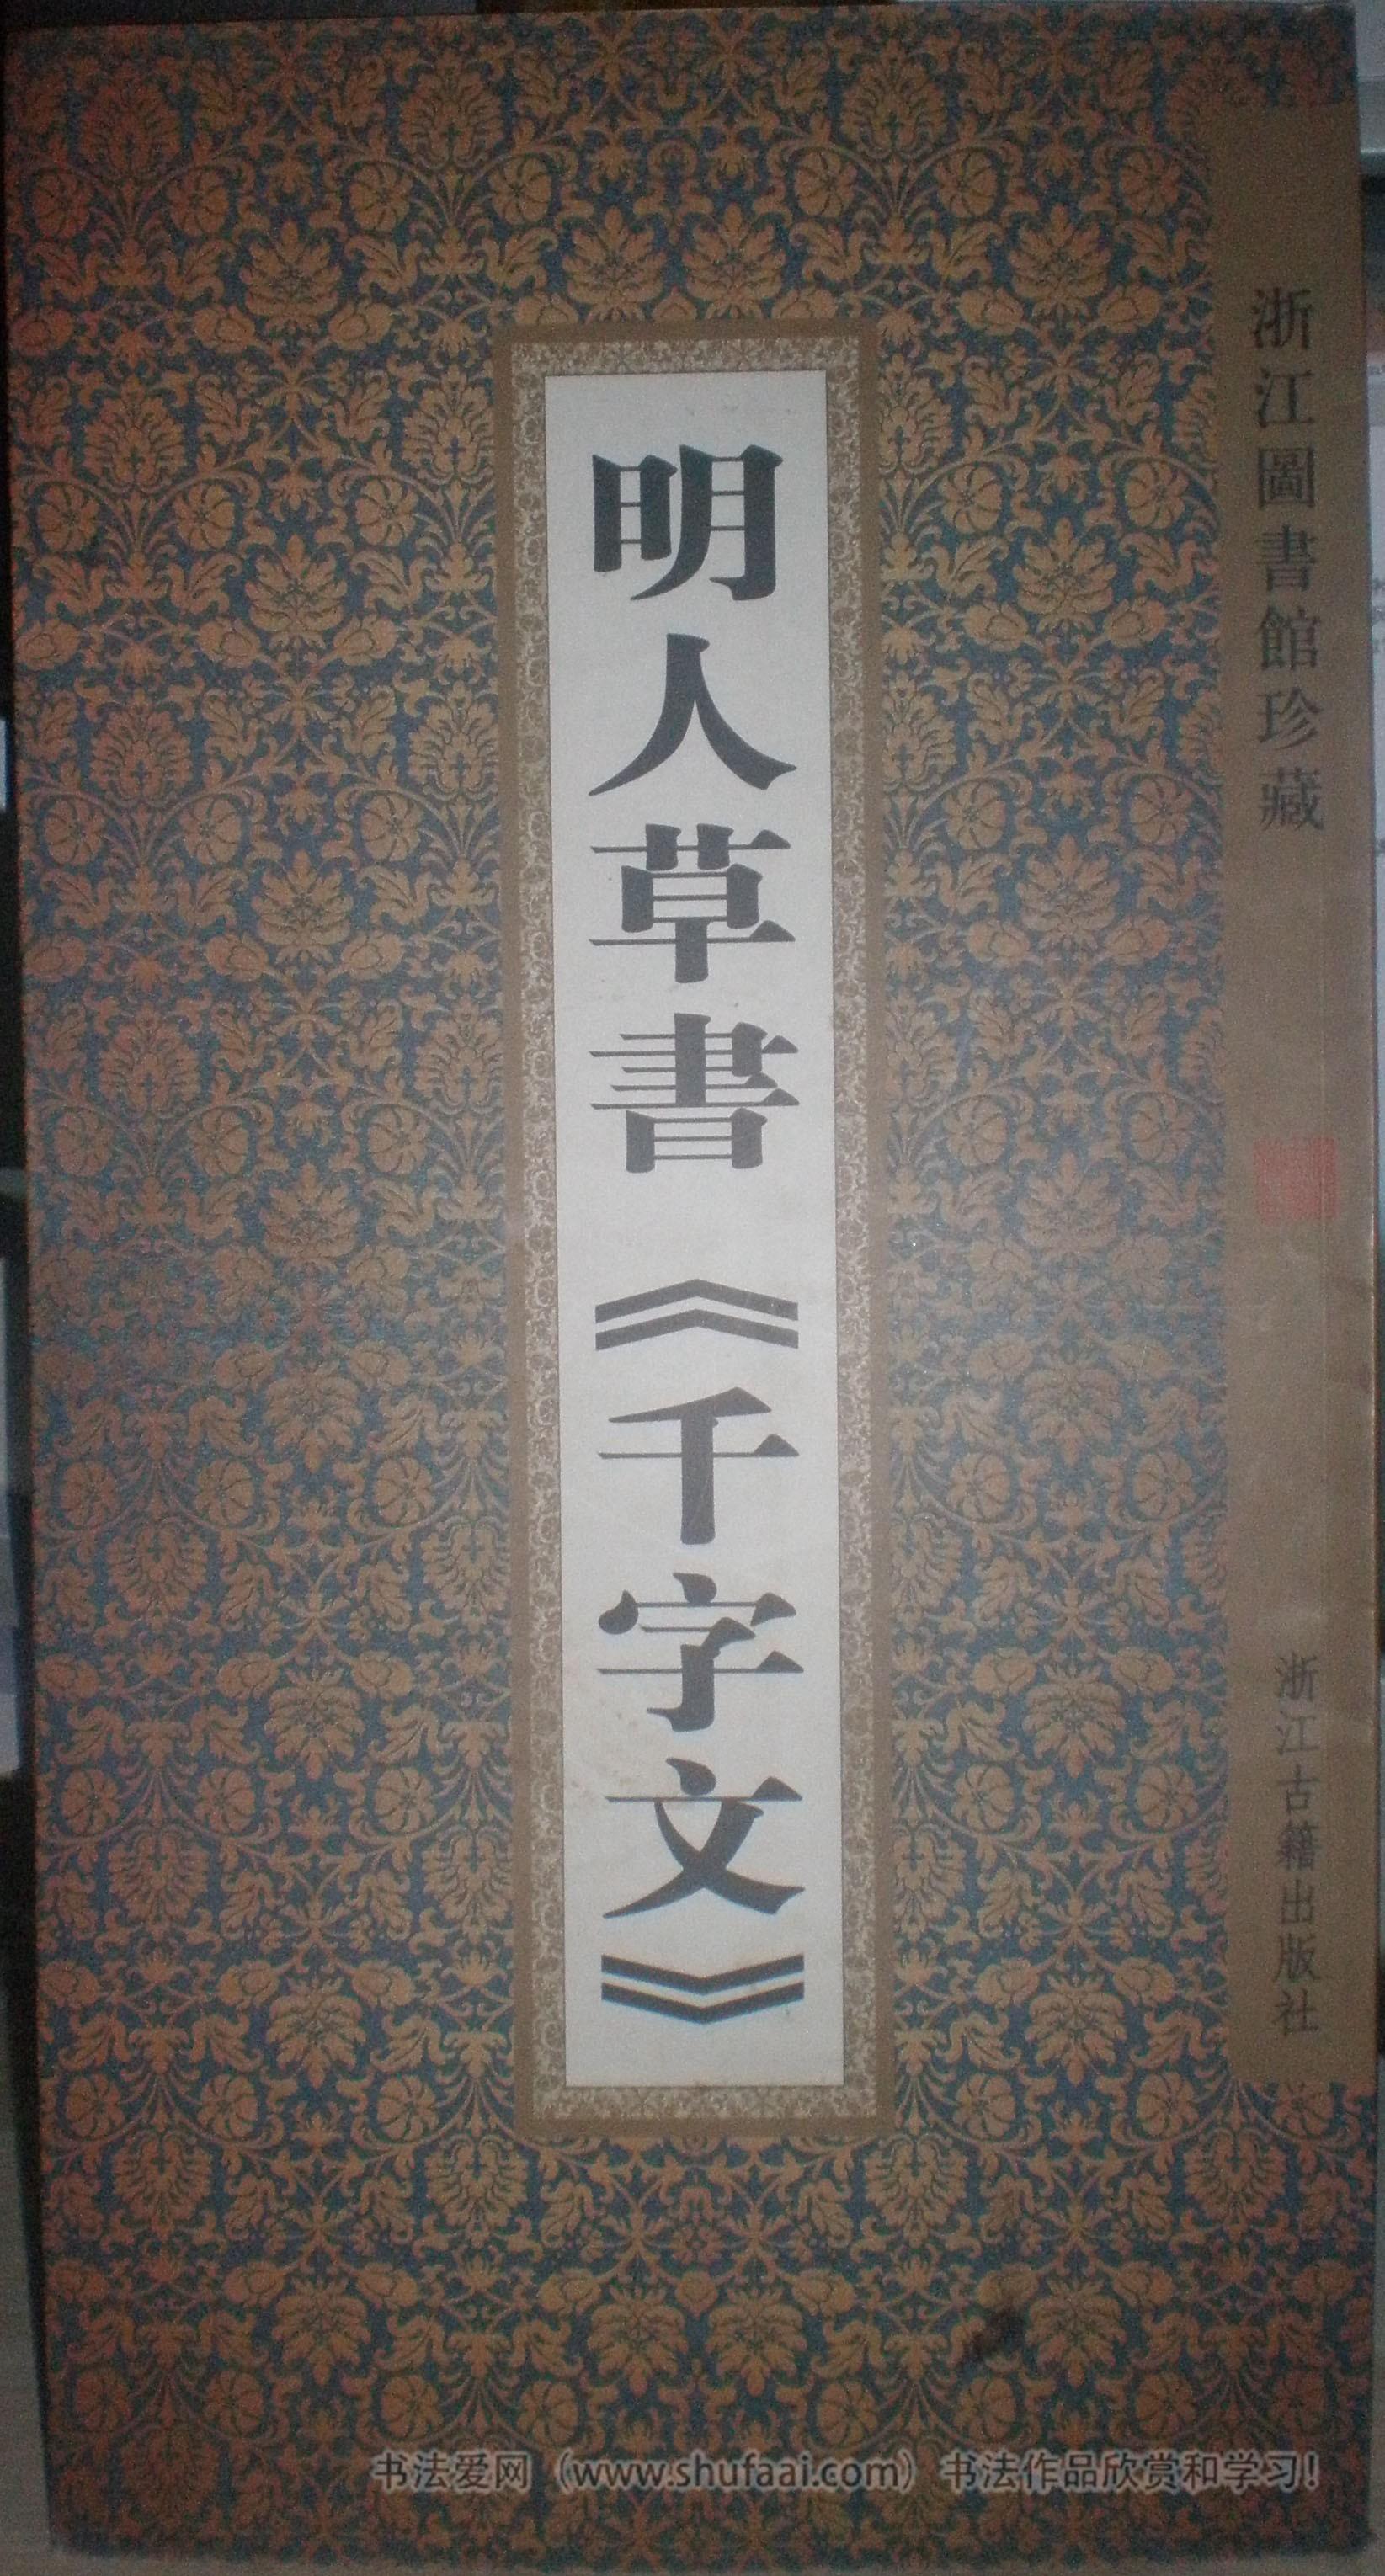 浙江圖書館珍藏
浙江古籍出版社
明人草書《千字文》
书法爱网（www.shufaai.com）书法作品欣赏和学习！